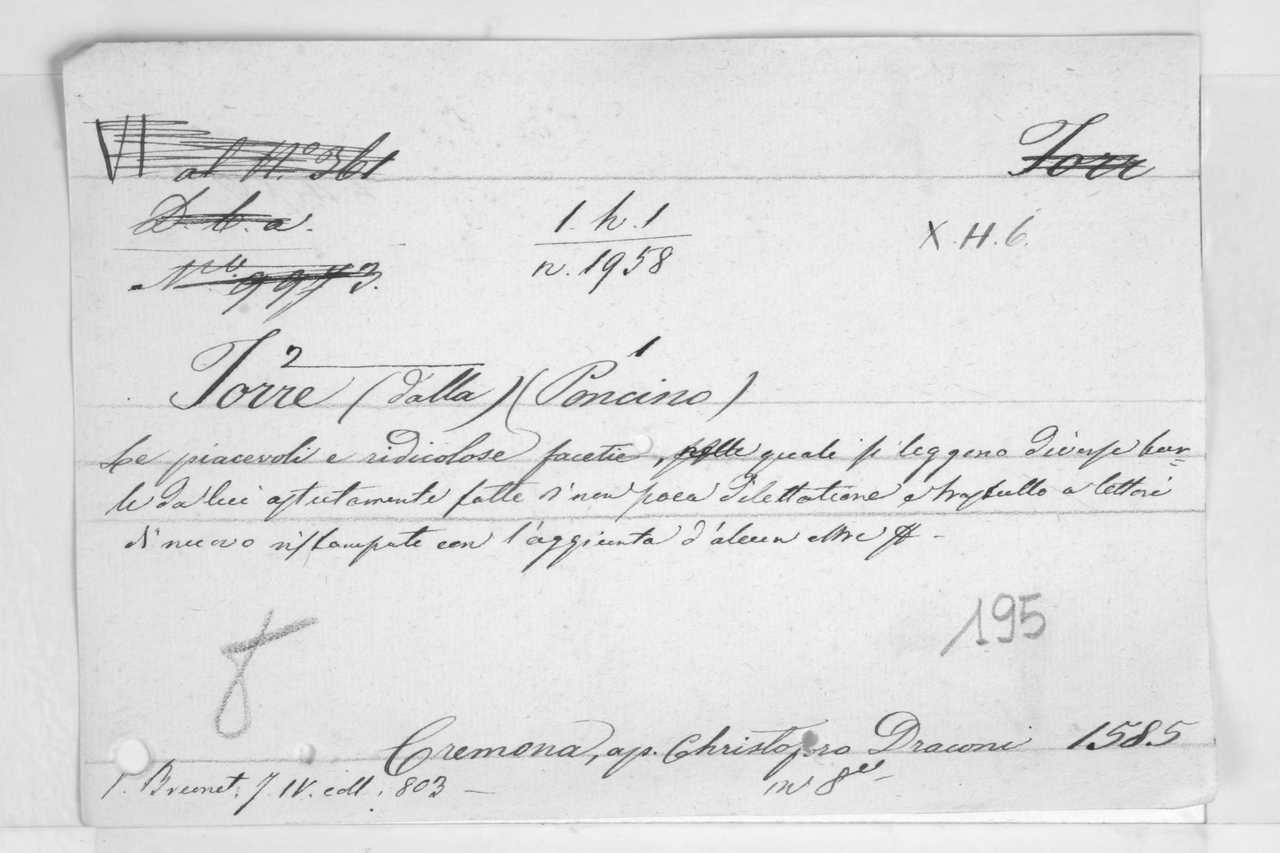 VII al N.o 361 Torr
D. b. a. 1. h. 1 X. H. 6.
N.ro 9973. n. 1958
2 1
Torre (dalla) (Poncino)
Le piacevoli e ridicolose facetie, nelle quali si leggono diverse bur=
le da lui astutamente fatte di non poca dilettatione e trastullo a lettori
di nuovo ristampate con l'aggiunta d'alcun altre
195
Cremona, ap. Christoforo Draconi 1585
in 8.vo
Brunet. T. IV. coll. 803 -